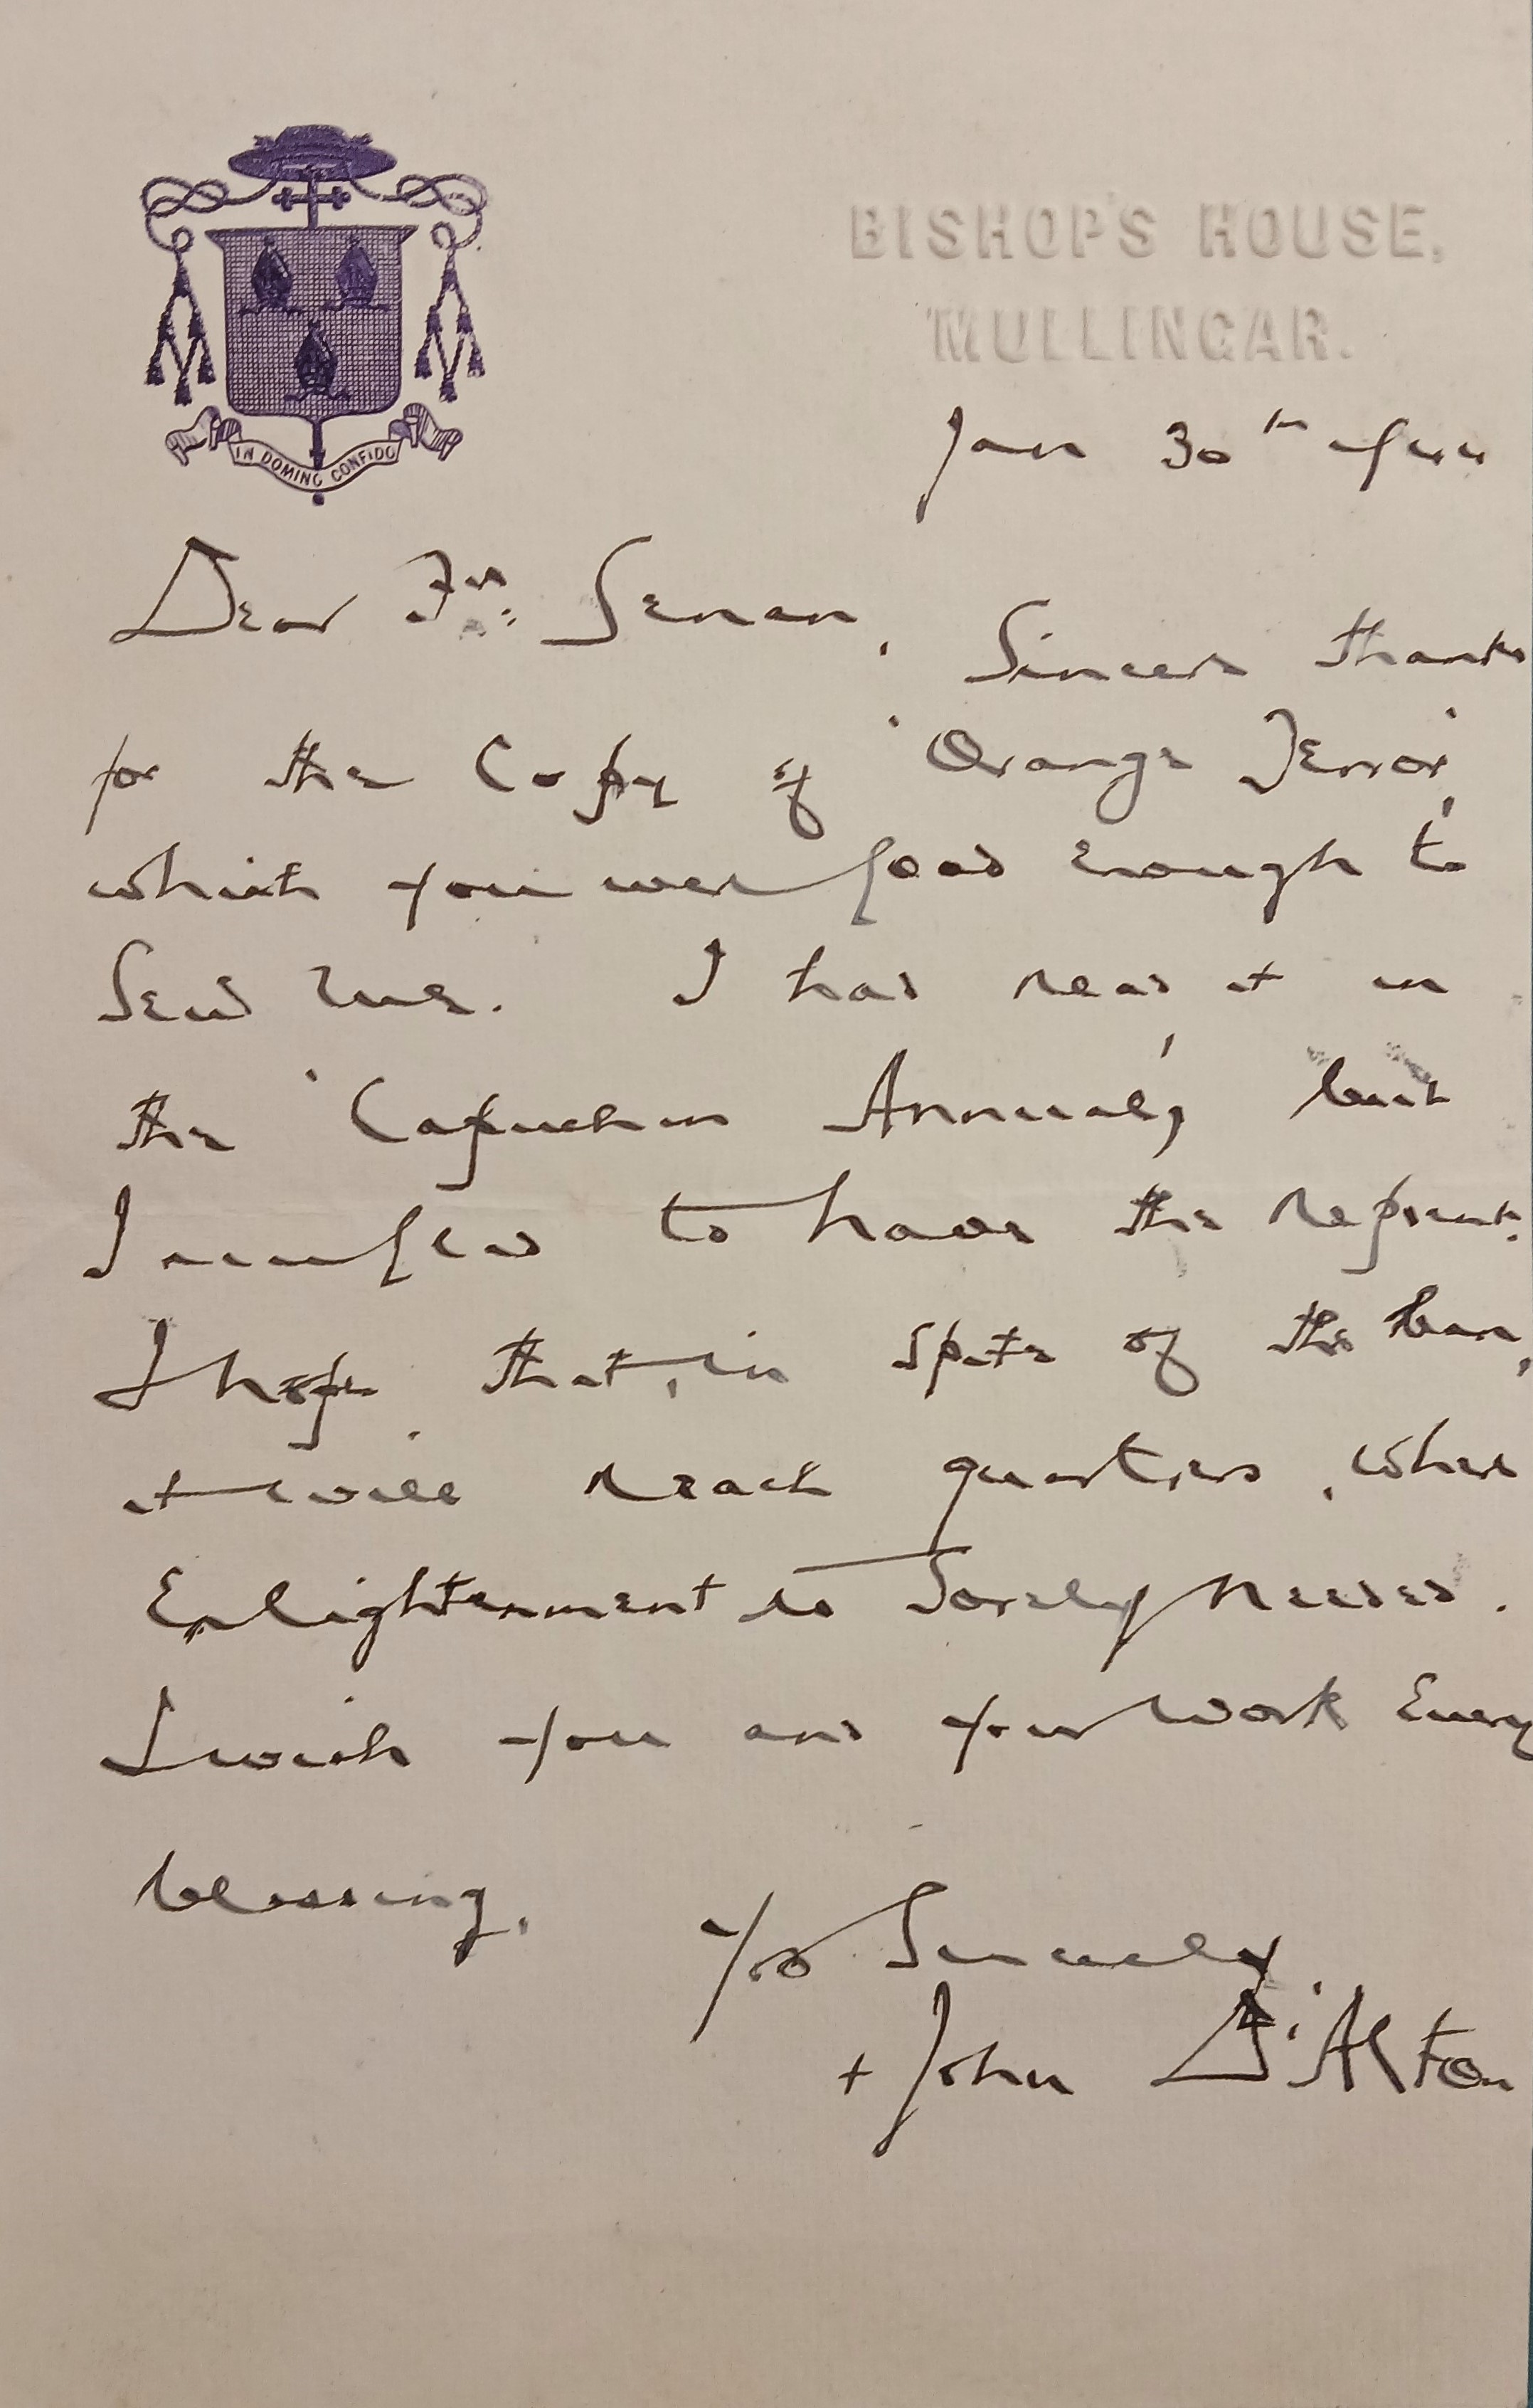 IN DOMINO CONFIDO
BISHOP'S HOUSE,
MULLINGAR.
Jan 30th 1944
Dear Fr: Senan,
Sincere thanks
for the Copy of 'Orange Terror',
which you were good enough to
send me. I had read it in
the 'Capuchin Annual', but
I am glad to have the reprint.
I hope that, in spite of the ban,
it will reach quarters, where
Enlightenment is sorely needed.
I wish you and your work Every
blessing.
Yrs Sincerely,
+ John D'Alton